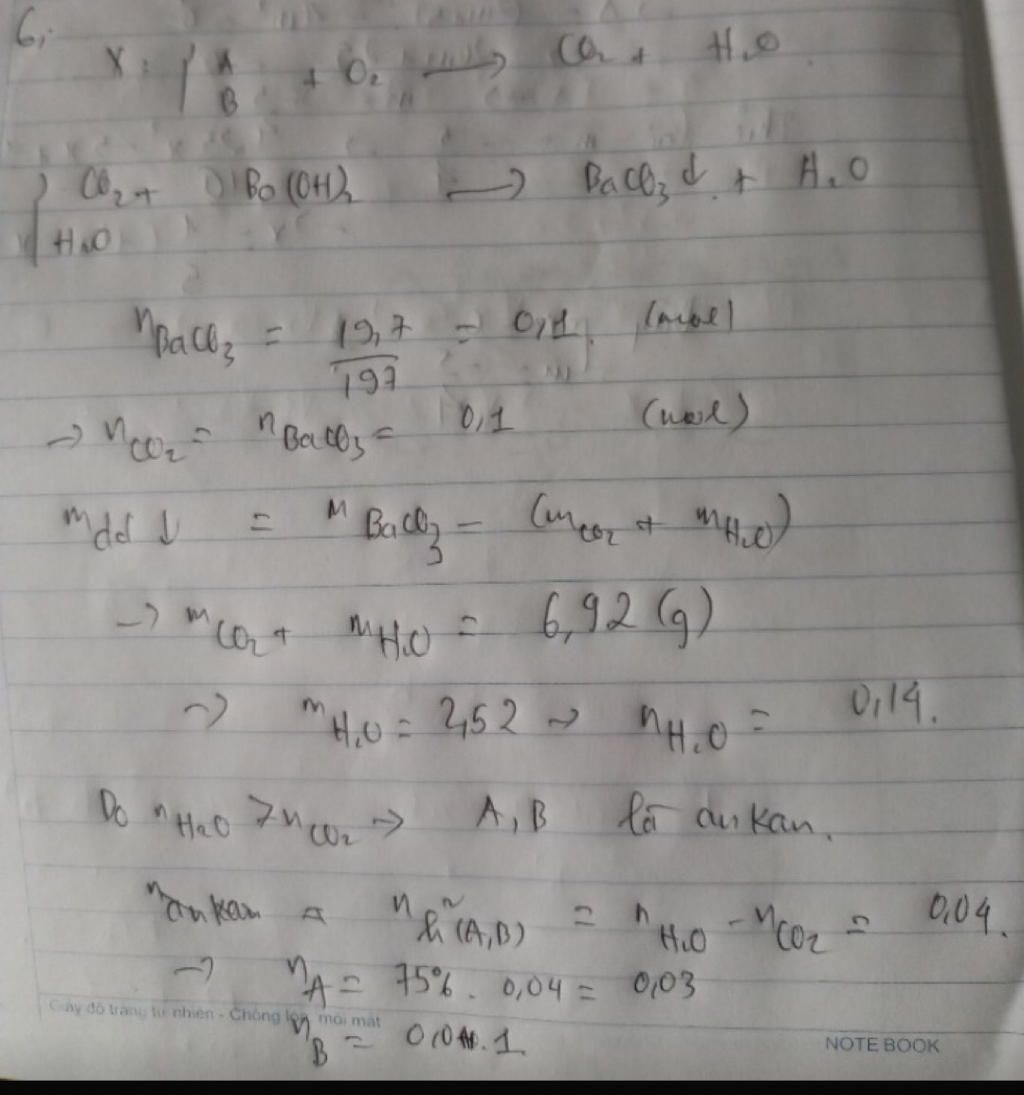 6,
X: { A B + O2 → CO2 + H2O
{ CO2 + Ba(OH)2 → BaCO3↓ + H2O
H2O
nBaCO3 = 19,7/197 = 0,1 (mol)
→ nCO2 = nBaCO3 = 0,1 (mol)
mdd↓ = mBaCO3 - (mCO2 + mH2O)
→ mCO2 + mH2O = 6,92 (g)
→ mH2O = 2,52 → nH2O = 0,14.
Do nH2O > nCO2 → A, B là ankan.
nankan = nh²(A,B) = nH2O - nCO2 = 0,04.
→ nA = 75% . 0,04 = 0,03
Giấy độ trắng tự nhiên - Chống lóa, mỏi mắt
nB = 0,01
NOTE BOOK